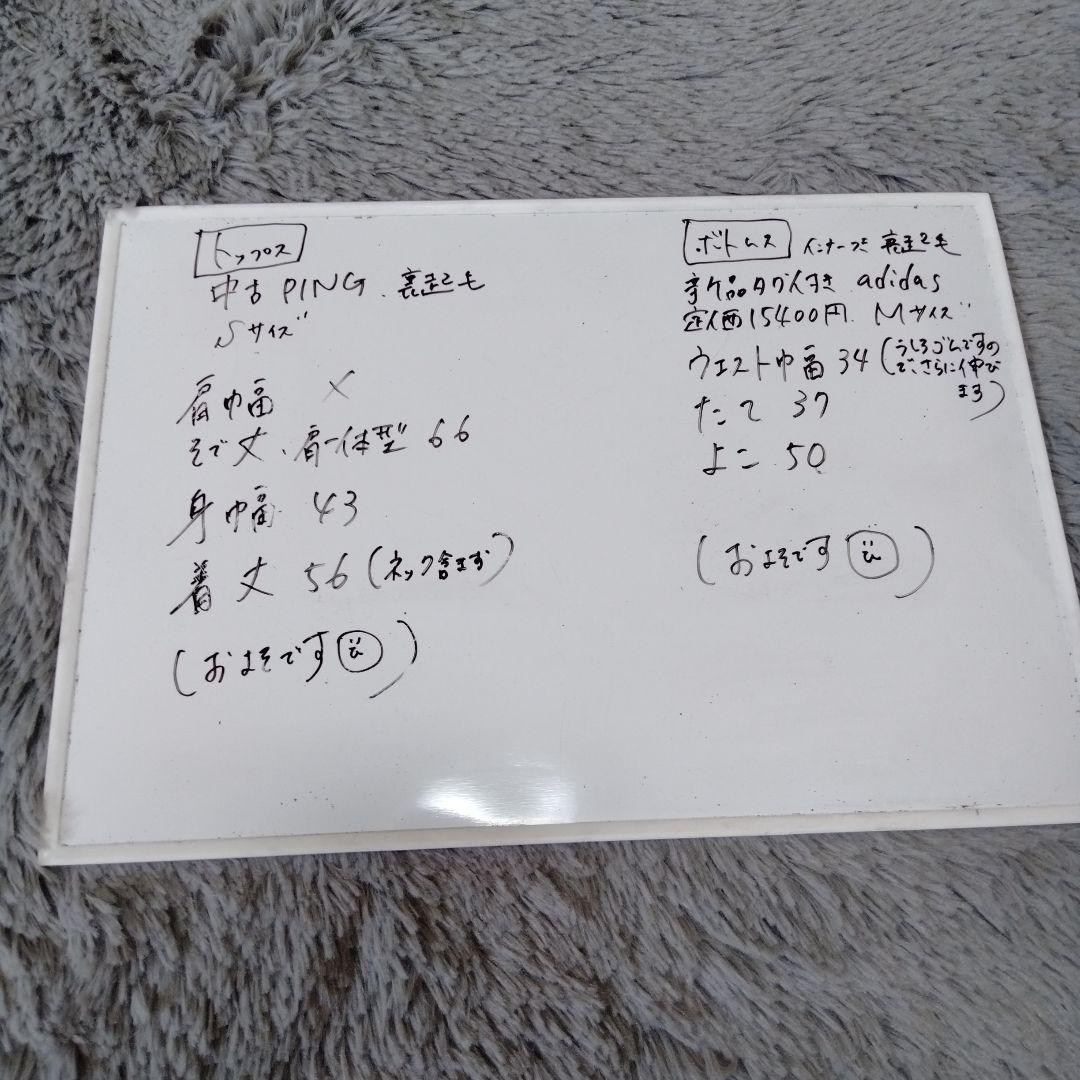 トップス
中古 PING. 裏起毛
Sサイズ
肩巾幅 ×
そで丈、肩一体型 66
身巾幅 43
着丈 56 (ネック含まず)
(およそです)
ボトムス インナーつき 裏起毛
新品タグ付き adidas
定価15400円. Mサイズ
ウエスト巾幅 34 (うしろゴムですの
で、さらに伸び
ます)
たて 37
よこ 50
(およそです)